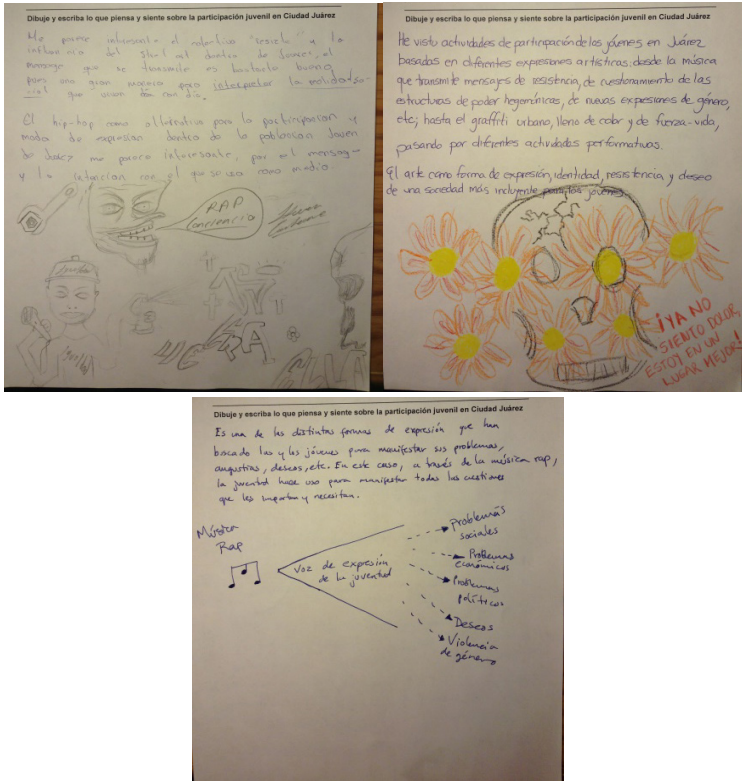 Dibuje y escriba lo que piensa y siente sobre la participación juvenil en Ciudad Juárez
Me parece interesante el colectivo y la
influencia del dentro de Juarez, el
mensaje que se transmite es bastante bueno
pues una gran manera para interpretar la realidad so-
cial que viven día con día.
El hip-hop como alternativa para la participacion y
modo de expresion dentro de la poblacion Joven
de me parece interesante, por el mensaj-
y la con el que se usa como medio.
RAP
Conciencia
Dibuje y escriba lo que piensa y siente sobre la participación juvenil en Ciudad Juárez
He visto actividades de participación de los jóvenes en Juárez
basadas en diferentes expresiones artísticas; desde la música
que transmite mensajes de resistencia, de cuestionamiento de las
estructuras de poder hegemónicas, de nuevas expresiones de género,
etc; hasta el graffiti urbano, lleno de color y de fuerza-vida,
pasando por diferentes actividades performativas.
El arte como forma de expresión, identidad, resistencia, y deseo
de una sociedad más incluyente para los jóvenes.
¡YA NO
SIENTO DOLOR,
ESTOY EN UN
LUGAR MEJOR!
Dibuje y escriba lo que piensa y siente sobre la participación juvenil en Ciudad Juárez
Es una de las distintas formas de expresión que han
buscado las y los jóvenes para manifestar sus problemas,
angustias, deseos, etc. En este caso, a través de la música rap,
la juventud hace uso para manifestar todas las cuestiones
que les importan y necesitan.
Música
Rap
Voz de expresión
de la juventud
Problemas
sociales
Problemas
económicos
Problemas
políticos
Deseos
Violencia
de género